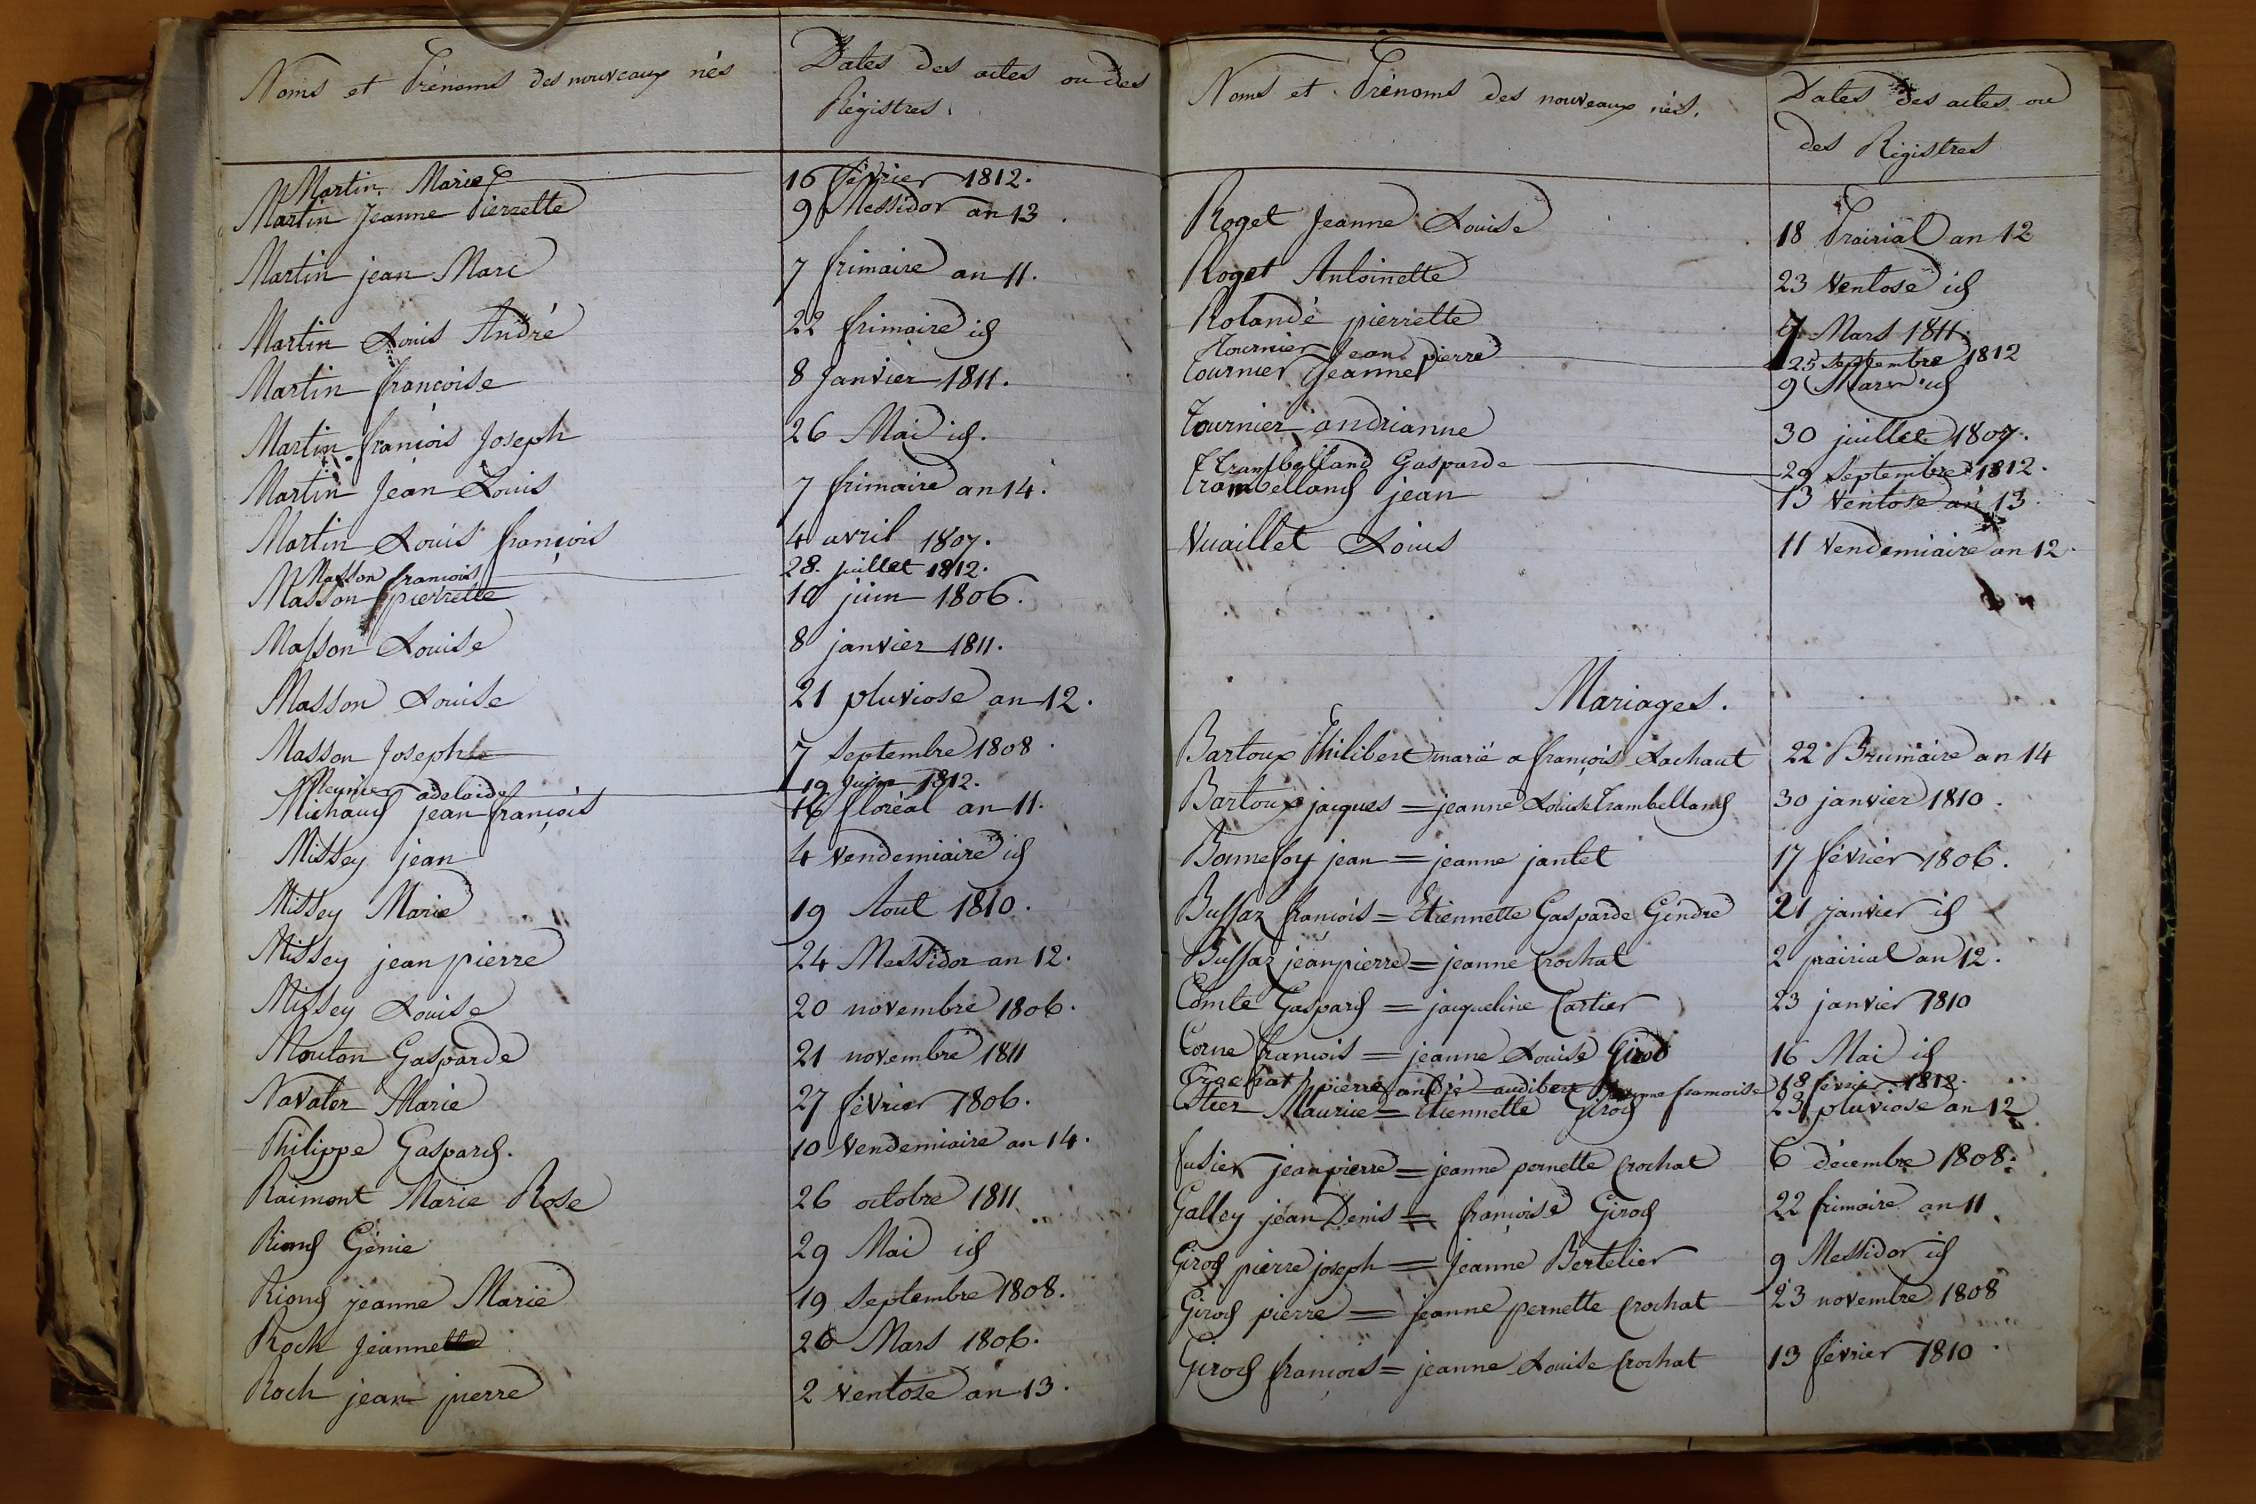 Noms et Prénoms des nouveaux nés Dates des actes ou des
Régistres.
Martin Marie 16 février 1812.
Martin Jeanne Pierrette 9 Messidor an 13.
Martin jean Marc 7 frimaire an 11.
Martin Louis André 22 frimaire id
Martin francoise 8 Janvier 1811.
Martin françois Joseph 26 Mai id.
Martin Jean Louis 7 frimaire an 14.
Martin Louis françois 4 avril 1807.
Masson francois 28. juillet 1812.
Masson pierrette 10 juin 1806.
Masson Louise 8 janvier 1811.
Masson Louise 21 pluviose an 12.
Masson Joseph 7 Septembre 1808.
Meynier adelaide 19 Juin 1812.
Michaud jean françois 16 floréal an 11.
Missey jean 4 Vendemiaire id
Missey Marie 19 Aout 1810.
Missey jean pierre 24 Messidor an 12.
Missey Louise 20 novembre 1806.
Mouton Gasparde 21 novembre 1811
Navater Marie 27 février 1806.
Philippe Gaspard. 10 Vendemiaire an 14.
Raimont Marie Rose 26 octobre 1811
Riond Génie 29 Mai id
Riond jeanne Marie 19 Septembre 1808.
Roch Jeanne 26 Mars 1806.
Roch jean pierre 2 Ventose an 13.
Noms et Prénoms des nouveaux nés. Dates des actes ou
des Régistres
Roget Jeanne Louise 18 Prairial an 12
Roget Antoinette 23 Ventose id
Rolandé pierrette 7 Mars 1811.
Tournier Jean pierre 25 Septembre 1812
Tournier Jeanne 9 Mars id
Tournier andrianne 30 juillet 1807.
Trambelland Gasparde 29 Septembre 1812.
Trambelland jean 13 Ventose an 13
Vuaillet Louis 11 Vendemiaire an 12.
Mariages.
Bartoux Philibert marié a françois Lachaut 22 Brumaire an 14
Bartoux jacques = jeanne Louise Trambelland 30 janvier 1810.
Bonnefoy jean = jeanne jantet 17 février 1806.
Buffaz françois = Etiennette Gasparde Gindre 21 janvier id
Buffaz jean pierre = jeanne Crochat 2 prairial an 12.
Comte Gaspard = jacqueline Cartier 23 janvier 1810
Corne francois = jeanne Louise Girod 16 Mai id
Crochat pierre andré audibert jeanne francoise 18 février 1812.
Maurice = Etiennette Girod 23 pluviose an 12
fusier jean pierre = jeanne pernette Crochat 6 décembre 1808.
Galley jean Denis = françoise Girod 22 frimaire an 11
Girod pierre joseph = Jeanne Bertelier 9 Messidor id
Girod pierre = jeanne pernette Crochat 23 novembre 1808
Girod françois = jeanne Louise Crochat 13 février 1810